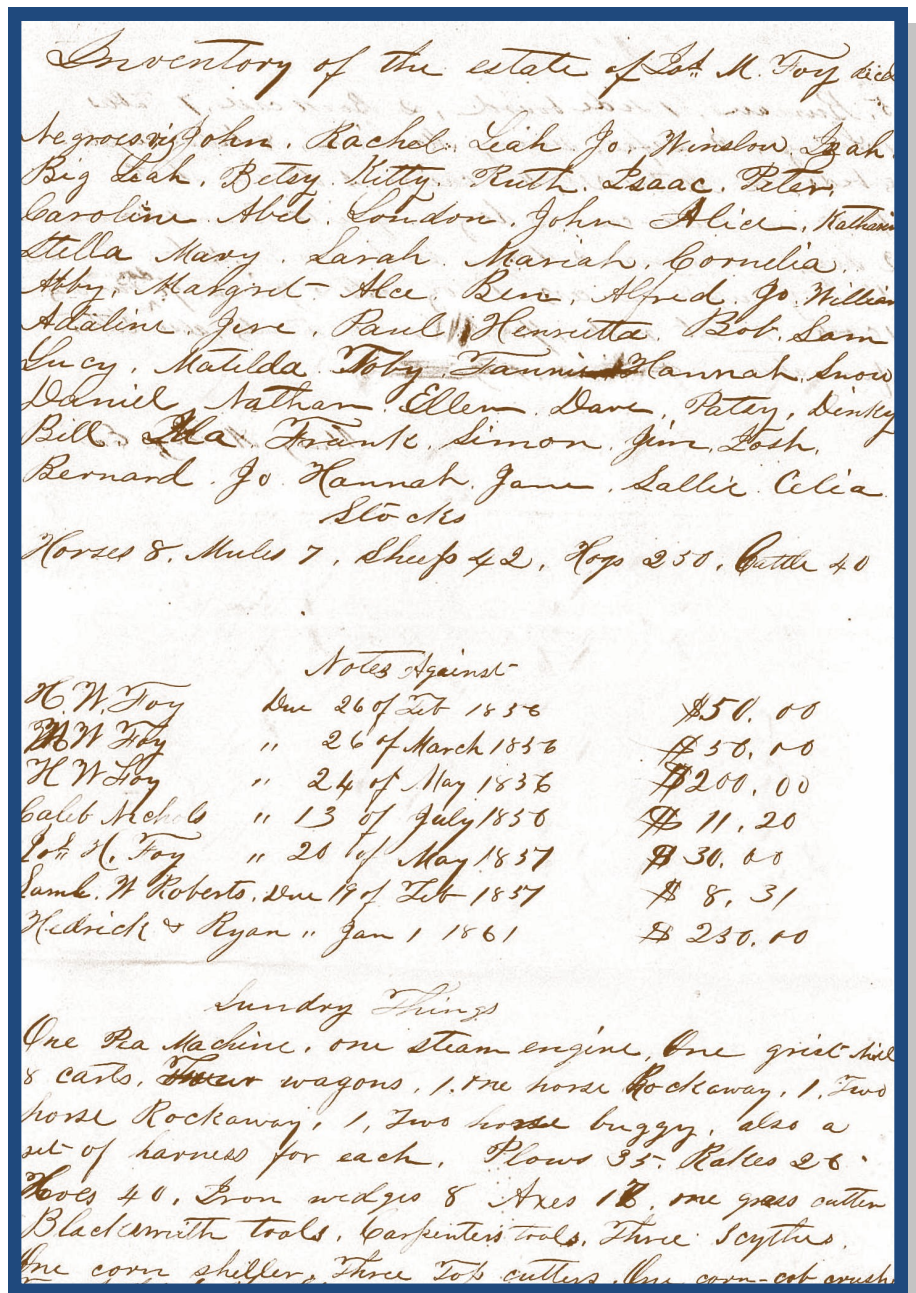 Inventory of the estate of Jos. M. Foy decd
Negroes viz John. Rachel. Leah Jo. Winslow Leah.
Big Leah. Betsy. Kitty. Ruth. Isaac. Peter.
Caroline. Abel. London. John Alice. Katharin
Stella Mary. Sarah. Mariah. Cornelia.
Abby. Margret - Alce. Ben. Alfred Jo. William
Adaline Jere. Paul. Henrietta. Bob. Sam
Lucy. Matilda. Toby. Fannie Hannah. Snow
Daniel Nathan. Ellen. Dave. Patsy. Dinky
Bill Ila Frank. Simon. Jim. Josh.
Bernard. Jo Hannah. Jane. Sallie. Celia.
Stocks
Horses 8. Mules 7. Sheep 42. Hogs 250. Cattle 40
Notes Against
H. W. Foy Due 26 of Feb 1856 $50.00
M W Foy " 26 of March 1856 $50.00
H W Foy " 24 of May 1856 $200.00
Caleb Nichols " 13 of July 1856 $11.20
Jos. H. Foy " 20 of May 1857 $30.00
Saml. W Roberts. Due 19 of Feb 1857 $8.31
Hedrick & Ryan " Jan 1 1861 $250.00
Sundry Things
One Pea Machine, one steam engine, One grist Mill
8 carts, Four wagons, 1, one horse Rockaway, 1, Two
horse Rockaway, 1, Two horse buggy, also a
set of harness for each. Plows 35. Rakes 26.
Hoes 40. Iron wedges 8 Axes 12. one grass cutter
Blacksmith tools. Carpenters tools. Three Scythes.
One corn sheller, Three Top cutters. One corn-cob crush